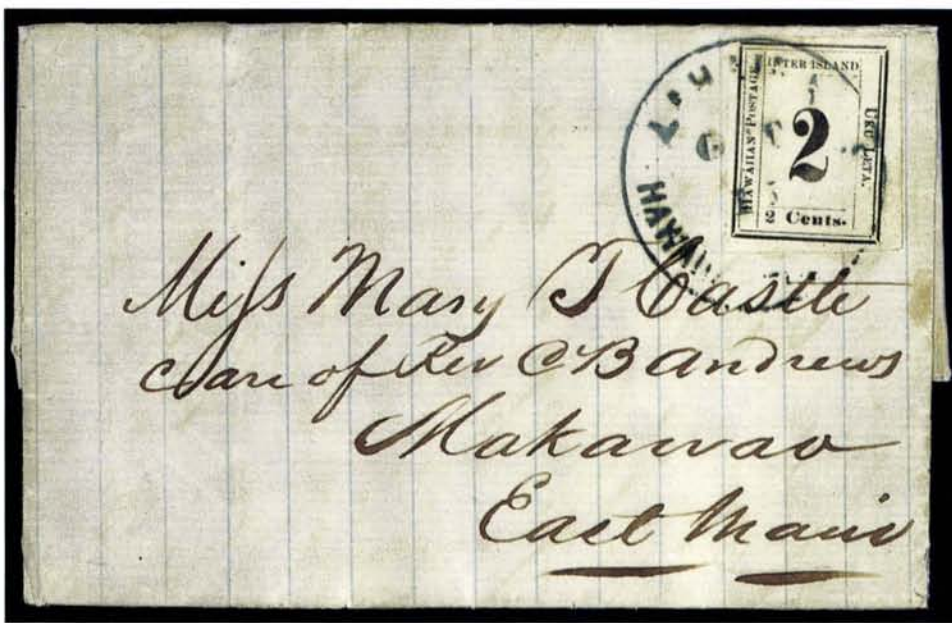 INTER ISLAND
HAWAIIAN POSTAGE
2
UKU LETA.
2 Cents.
HAWAII
Miss Mary J Castle
Care of Rev C B Andrews
Makawao
East Maui